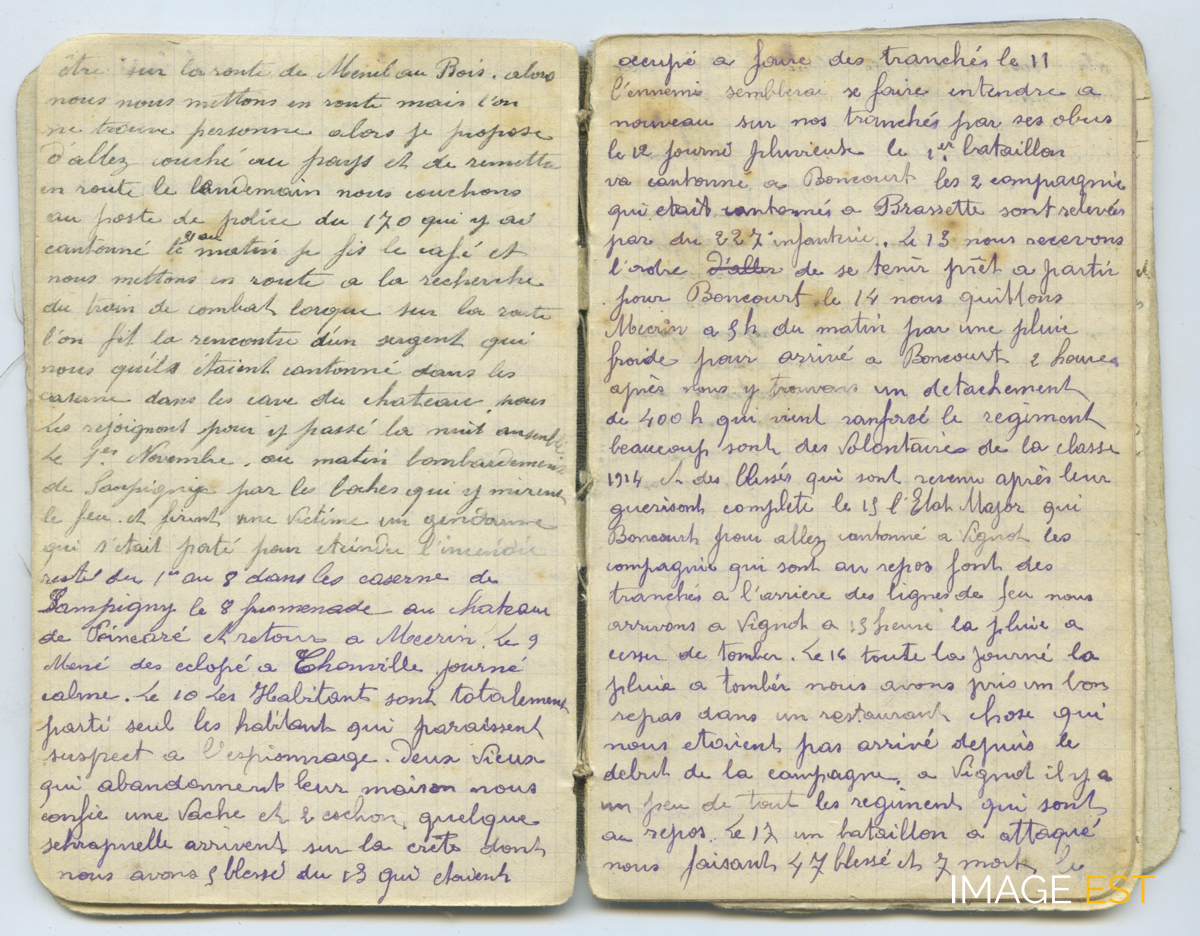 être sur la route de Menil au Bois. alors
nous nous mettons en route mais l'on
ne trouve personne alors je propose
d'allez couché au pays et de remettre
en route le landemain nous couchons
au poste de police du 170 qui y as
cantonné le 31 au matin je fis le café et
nous mettons en route a la recherche
du train de combat lorque sur la route
l'on fit la rencontre d'un sergent qui
nous qu'ils étaient cantonné dans les
caserne dans les cave du chateau nous
les rejoignont pour y passé la nuit ensemble
le 1er Novembre. au matin bombardement
de Sampigny par les boches qui y mirent
le feu et firent une victime un gendarme
qui s'était porté pour eteindre l'incendie
resté du 1er au 8 dans les caserne de
Sampigny le 8 promenade au chateau
de Poincaré et retour a Mecrin. Le 9
Mené des eclopé a Chonville journé
calme. Le 10 Les Habitant sont totalement
parti seul les habitant qui paraissent
suspect a l'espionnage. Deux vieux
qui abandonnent leur maison nous
confie une Vache et 2 cochon, quelque
schrapnelle arrivent sur la crête dont
nous avons 5 blessé du 13 qui etaient
ocupé a faire des tranchés le 11
l'ennemie semblerai se faire entendre a
nouveau sur nos tranchés par ses obus
le 12 journé pluvieuse le 1er bataillon
va cantonné a Boncourt les 2 compagnie
qui etait cantonnés a Brassette sont relevées
par du 227 infantrie. Le 13 nous recevons
l'ordre d'aller de se tenir prêt a partir
pour Boncourt le 14 nous quittons
Mecrin a 5h du matin par une pluie
froide pour arrivé a Boncourt 2 heures
après nous y trouvons un detachement
de 400 h qui vient ranforcé le regiment
beaucoup sont des Volontaires de la classe
1914 et des blessés qui sont revenu après leur
guerisont complete le 15 l'Etat Major qui
Boncourt pour allez cantonné a Vignot les
compagnie qui sont au repos font des
tranchés a l'arrière des lignes de feu nous
arrivons a Vignot a 15 heure la pluie a
cesser de tomber. Le 16 toute la journé la
pluie a tombér nous avons pris un bon
repas dans un restaurant chose qui
nous etaient pas arrivé depuis le
debut de la campagne, a Vignot il y a
un peu de tout les regiment qui sont
au repos. Le 17 un bataillon a attaqué
nous faisant 47 blessé et 7 mort le
IMAGE EST